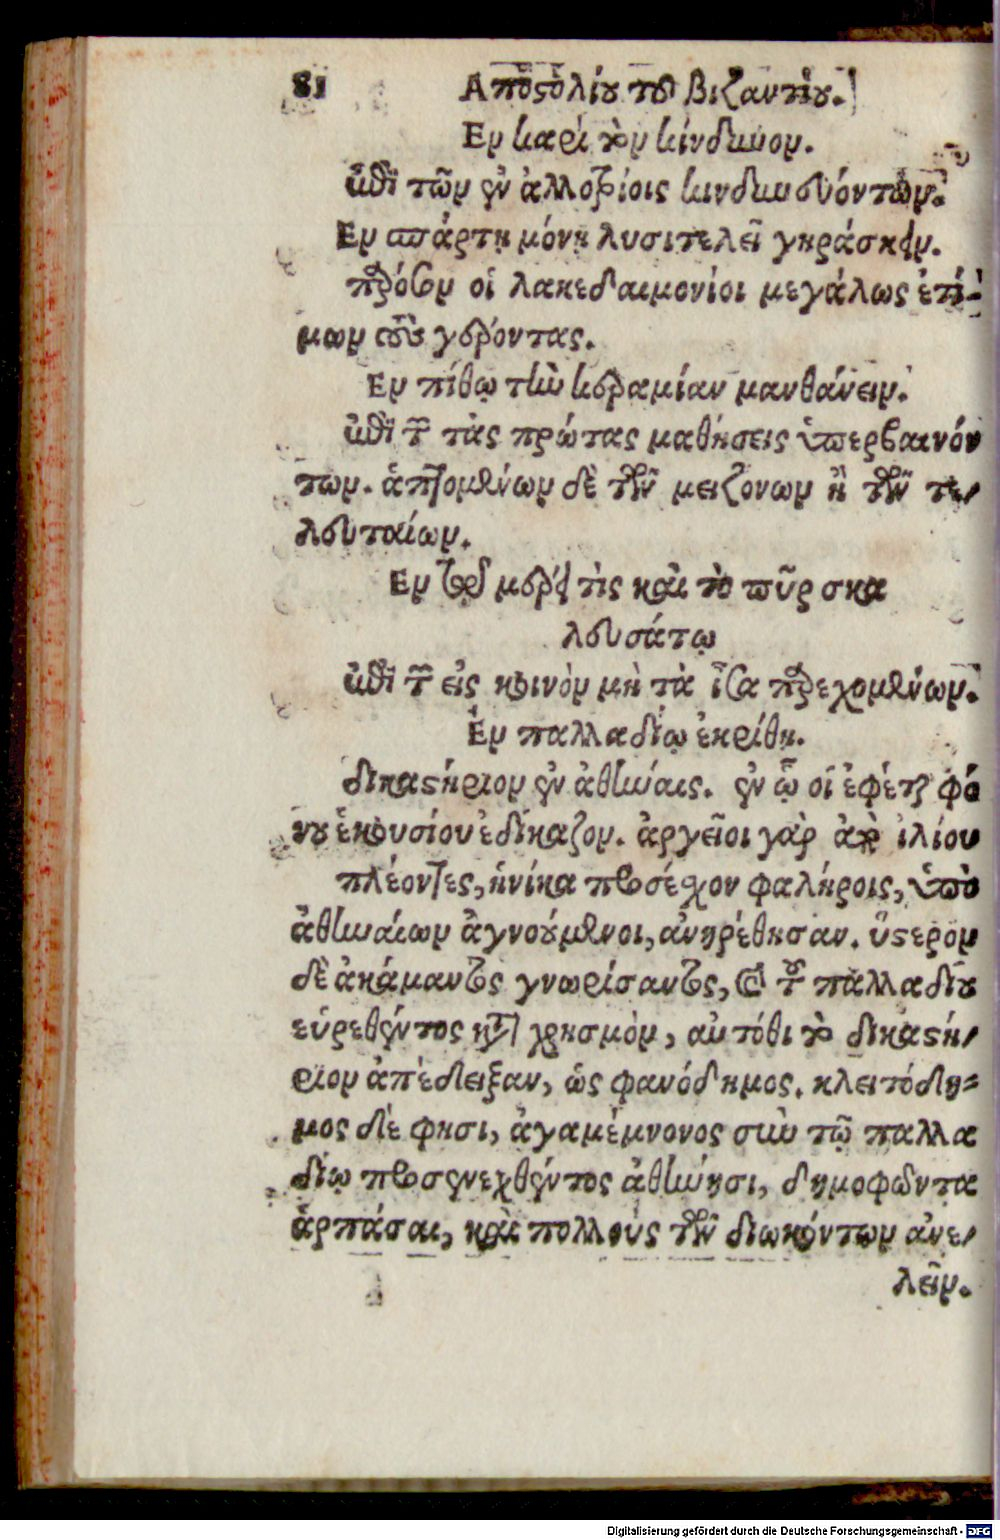 81 Αποστολίου τοῦ βιζαντίου.
Εν καρὶ τὸν κίνδυνον.
ἐπὶ τῶν ἐν ἀλλοτρίοις κινδυνευόντων.
Εν σπάρτῃ μόνῃ λυσιτελεῖ γηράσκειν.
παρόσον οἱ λακεδαιμονίοι μεγάλως ἐτί-
μων τοὺς γέροντας.
Εν πίθῳ τὴν κεραμίαν μανθάνειν.
ἐπὶ τῶν τὰς πρώτας μαθήσεις ὑπερβαινόν
των. ἁπτομένων δὲ τῶν μειζονων ἢ τῶν τε/
λευταίων.
Εν μέρει τὶς καὶ τὸ πῦρ σκα
λευσάτω
ἐπὶ τῶν εἰς κοινὸν μὴ τὰ ἶσα παρεχομένων.
Ἐν παλλαδίῳ ἐκρίθη.
δικαστήριον ἐν ἀθήναις. ἐν ᾧ οἱ ἐφέται φό
νου ἑκουσίου ἐδίκαζον. ἀργεῖοι γὰρ ἀπὸ ἰλίου
πλέοντες, ἡνίκα προσέσχον φαλήροις, ὑπὸ
ἀθηναίων ἀγνούμενοι, ἀνῃρέθησαν. ὕστερον
δὲ ἀκάμαντος γνωρίσαντος, καὶ τοῦ παλλαδίου
εὑρεθέντος κατὰ χρησμὸν, αὐτόθι τὸ δικαστή/
ριον ἀπέδειξαν, ὡς φανόδημος. κλειτόδη-
μος δέ φησι, ἀγαμέμνονος σὺν τῷ παλλα
δίῳ προσενεχθέντος ἀθήνησι, δημοφῶντα
ἁρπάσαι, καὶ πολλοὺς τῶν διωκόντων ἀνε/
λεῖν.
Digitalisierung gefördert durch die Deutsche Forschungsgemeinschaft - DFG